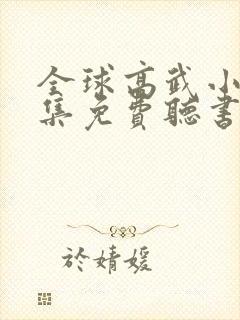 全球高武小
集免费聽書
於婧媛